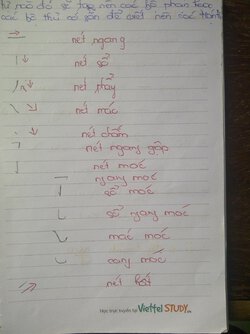 từ nào đó sẽ tạo nên các bộ phận hoặc
các bộ thủ có sẵn để viết nên các thành
nét ngang
nét sổ
nét phẩy
nét mác
nét chấm
nét ngang gập
nét móc
ngang móc
sổ móc
sổ ngang móc
mác móc
cong móc
nét hất
Học trực tuyến tại Viettel STUDY.vn